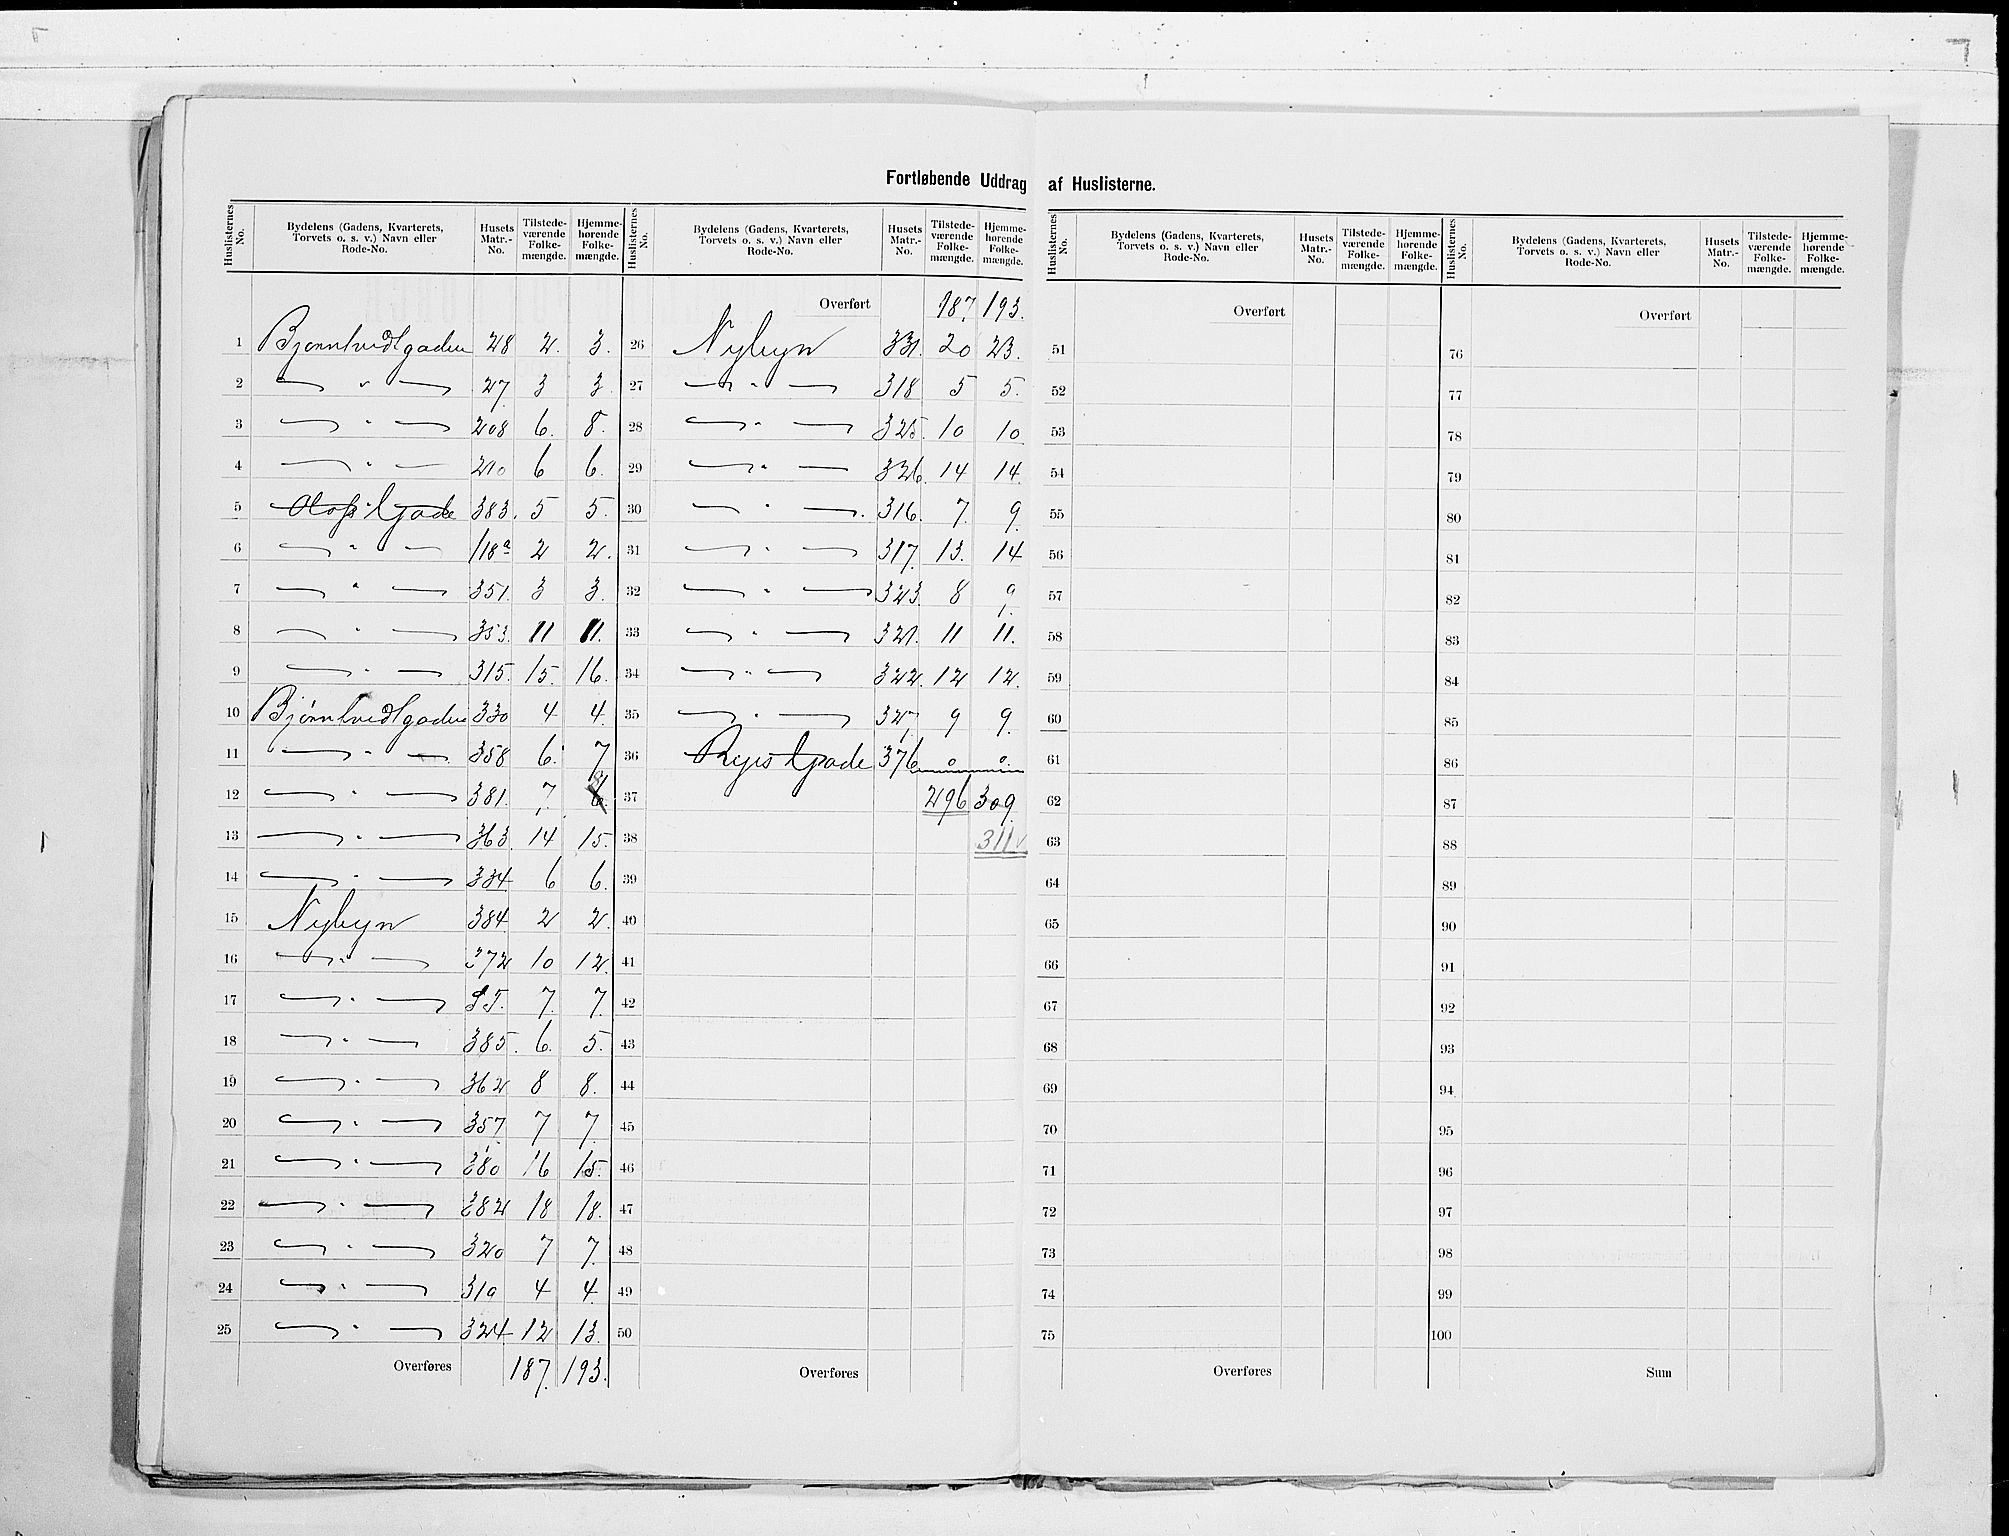 Fortløbende Uddrag af Huslisterne.
Huslisternes No. Bydelens (Gadens, Kvarterets, Torvets o. s. v.) Navn eller Rode-No. Husets Matr.-No. Tilstedeværende Folkemængde. Hjemmehørende Folkemængde.
1 Bjørnhvedtgaden 28 2. 3.
2 — " — 27 3 3.
3 — " — 208 6. 8.
4 — " — 210 6 6.
5 Olafs Gade 383. 5 5.
6 — " — 118a 2 2.
7 — " — 351. 3 3.
8 — " — 353. 11 11.
9 — " — 315. 15. 16.
10 Bjørnhvedtgaden 330 4 4.
11 — " — 358 6. 7
12 — " — 381. 7. 8
13 — " — 363 14 15.
14 — " — 334 6 6.
15 Nybyn 384 2 2.
16 — " — 372 10 12.
17 — " — 7. 7.
18 — " — 385. 6. 5.
19 — " — 362 8 8.
20 — " — 357 7 7.
21 — " — 380 16 15.
22 — " — 382 18 18.
23 — " — 320 7 7.
24 — " — 319 4 4.
25 — " — 324 12 13.
Overføres 187. 193.
Huslisternes No. Bydelens (Gadens, Kvarterets, Torvets o. s. v.) Navn eller Rode-No. Husets Matr.-No. Tilstedeværende Folkemængde. Hjemmehørende Folkemængde.
Overført 187. 193.
26 Nybyn 331. 20 23.
27 — " — 318 5 5.
28 — " — 325. 10 10
29 — " — 326. 14 14.
30 — " — 316. 7. 9.
31 — " — 317. 13. 14
32 — " — 323. 8 9.
33 — " — 321. 11 11.
34 — " — 322. 12 12.
35 — " — 327. 9 9.
36 Ryes Gade 376 0 0.
37 296 309
38 311
39
40
41
42
43
44
45
46
47
48
49
50
Overføres
Huslisternes No. Bydelens (Gadens, Kvarterets, Torvets o. s. v.) Navn eller Rode-No. Husets Matr.-No. Tilstedeværende Folkemængde. Hjemmehørende Folkemængde.
Overført
51
52
53
54
55
56
57
58
59
60
61
62
63
64
65
66
67
68
69
70
71
72
73
74
75
Overføres
Huslisternes No. Bydelens (Gadens, Kvarterets, Torvets o. s. v.) Navn eller Rode-No. Husets Matr.-No. Tilstedeværende Folkemængde. Hjemmehørende Folkemængde.
Overført
76
77
78
79
80
81
82
83
84
85
86
87
88
89
90
91
92
93
94
95
96
97
98
99
100
Sum